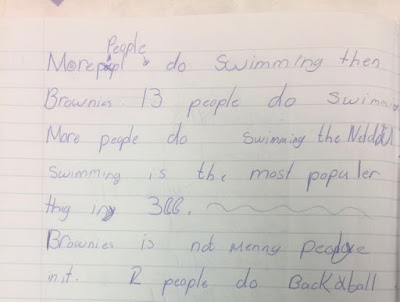 People
More do swimming then
Brownies. 13 people do swimming
More people do swimming the Netball
swimming is the most populer
thig in 3BB.
Brownies is not menny people
in it. 2 people do Backetball